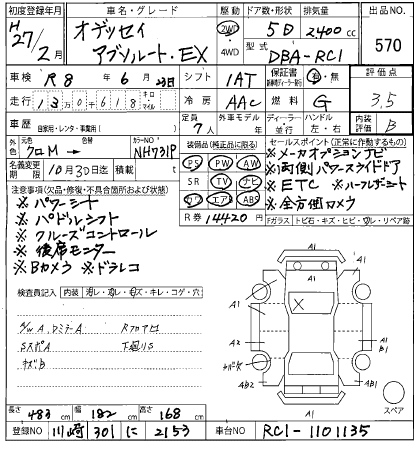 初度登録年月 車名・グレード 駆動 ドア数・形状 排気量 出品NO.
H27/2月 オデッセイ アブソルート・EX 2WD 4WD 5D 2400cc 570
型式 DBA-RC1
車検 R8年6月23日 シフト 1AT 保証書 有・無 評価点
走行 130618 キロ マイル 冷房 AAC 燃料 G 3.5
車歴 自家用・レンタ・事業用( ) 定員 7人 外車モデル 年 ディーラー 並行 ハンドル 左・右 内装評価 B
外色 元色 クロM → 色替 カラーNO. NH731P
装備品(純正品に限る) PS PW AW SR TV ナビ カワ エアB ABS
セールスポイント(正常に作動するもの)
※メーカオプションナビ
※両側パワースライドドア
※ETC ※ハーフレザーシート
※全方側カメラ
名義変更期限 10月30日 積載 t
R券 14420円 Fガラス トビ石・キズ・ヒビ・ワレ・リペア跡
注意事項(欠品・修復・不具合箇所および状態)
※パワーシート
※パドルシフト
※クルーズコントロール
※後席モニター
※Bカメラ ※ドラレコ
検査員記入 内装 汚レ・スレ・キズ・キレ・コゲ・穴
SスポA 下廻りS
キズB
A1
A1
A1
A2 X A1
A2 A1 B1
A2
4B2 4B1
A1
スペア
長さ 483cm 幅 182cm 高さ 168cm
登録NO 川崎 301 に 2153 車台NO RC1-1101135